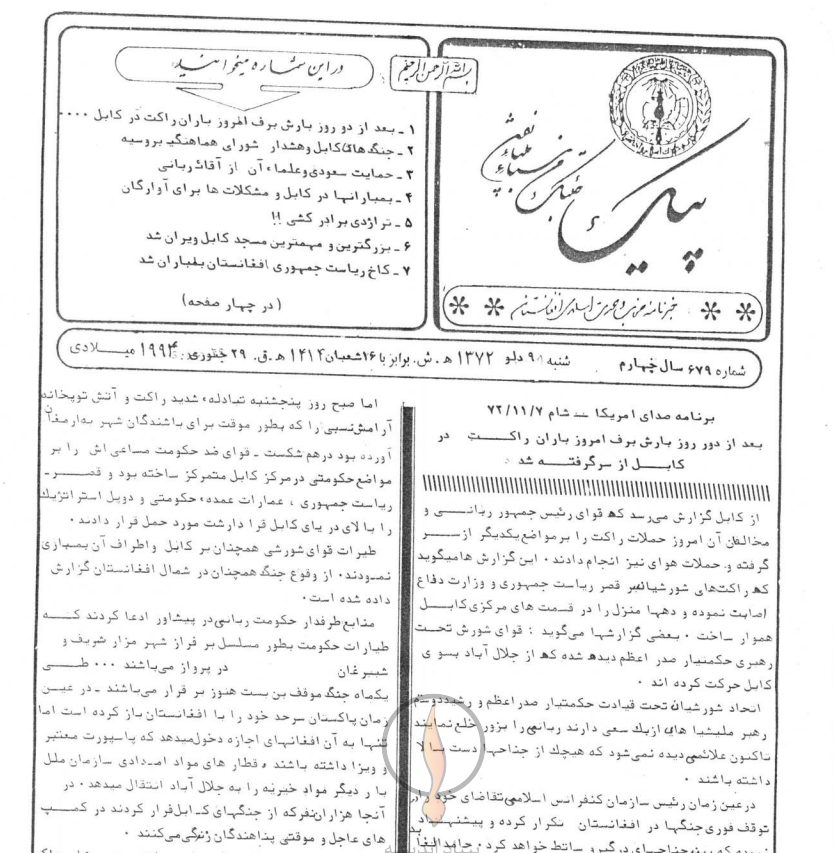 بسم الله الرحمن الرحیم
در این شماره میخوانید
۱ ـ بعد از دو روز بارش برف امروز باران راکت در کابل ....
۲ ـ جنگ های کابل و هشدار شورای هماهنگی بروسیه
۳ ـ حمایت سعودی و علماء آن از آقای ربانی
۴ ـ بمبارانها در کابل و مشکلات ها برای آوارگان
۵ ـ تراژدی برادر کشی !!
۶ ـ بزرگترین و مهمترین مسجد کابل ویران شد
۷ ـ کاخ ریاست جمهوری افغانستان بمباران شد
(در چهار صفحه)
پیک
خبرنامه افغانستان
شماره ۶۷۹ سال چهارم شنبه ۹ دلو ۱۳۷۲ ه . ش. برابر با ۱۶ شعبان ۱۴۱۴ ه . ق. ۲۹ جنوری ۱۹۹۴ میلادی
برنامه صدای امریکا شام ۷۲/۱۱/۷
بعد از دور روز بارش برف امروز باران راکت در
کابل از سر گرفته شد
از کابل گزارش می‌رسد که قوای رئیس جمهور ربانی و
مخالفان آن امروز حملات راکت را بر مواضع یکدیگر از سر
گرفته و حملات هوای نیز انجام دادند . این گزارش ها میگوید
که راکت‌های شورشیان بر قصر ریاست جمهوری و وزارت دفاع
اصابت نموده و دهها منزل را در قسمت های مرکزی کابل
هموار ساخت . بعضی گزارشها می‌گوید : قوای شورش تحت
رهبری حکمتیار صدر اعظم دیده شده که از جلال آباد بسوی
کابل حرکت کرده اند .
اتحاد شورشیان تحت قیادت حکمتیار صدر اعظم و رشید دوستم
رهبر ملیشیا های ازبک سعی دارند ربانی را بزور خلع نمایند
تاکنون علائمی دیده نمی‌شود که هیچک از جناحها دست بالا
داشته باشند .
در عین زمان رئیس سازمان کنفرانس اسلامی تقاضای خود را
توقف فوری جنگها در افغانستان تکرار کرده و پیشنهاد
اما صبح روز پنجشنبه تبادلهء شدید راکت و آتش توپخانه
آرامش نسبی را که بطور موقت برای باشندگان شهر به ارمغان
آورده بود درهم شکست ـ قوای ضد حکومت مساعی اش را بر
مواضع حکومتی در مرکز کابل متمرکز ساخته بود و قصر ـ
ریاست جمهوری ، عمارات عمدهء حکومتی و دوپل استراتژیک
را بالای دریای کابل قرا دارشت مورد حمل قرار دادند .
طیرات قوای شورشی همچنان بر کابل و اطراف آن بمباری
نمودند . از وقوع جنگ همچنان در شمال افغانستان گزارش
داده شده است .
منابع طرفدار حکومت ربانی در پیشاور ادعا کردند که
طیارات حکومت بطور مسلسل بر فراز شهر مزار شریف و
شبرغان در پرواز می‌باشند ... طی
یکماه جنگ موقف بن بست هنوز بر قرار می‌باشند ـ در عین
زمان پاکستان سرحد خود را با افغانستان باز کرده است اما
تنها به آن افغانهای اجازه دخول میدهد که پاسپورت معتبر
و ویزا داشته باشند ، قطار های مواد امدادی سازمان ملل
با ر دیگر مواد خیریه را به جلال آباد انتقال میدهد . در
آنجا هزاران نفر که از جنگهای کابل فرار کردند در کمپ
های عاجل و موقتی پناهندگان زندگی می‌کنند .